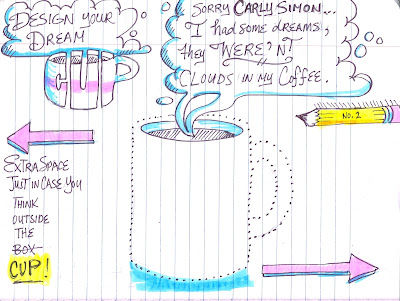 DESIGN YOUR
DREAM
CUP
SORRY CARLY SIMON...
I had some dreams,
they WERE?N'T
CLOUDS IN MY COFFEE.
NO. 2
EXTRA SPACE
JUST IN CASE YOU
THINK
OUTSIDE
THE
BOX
CUP!